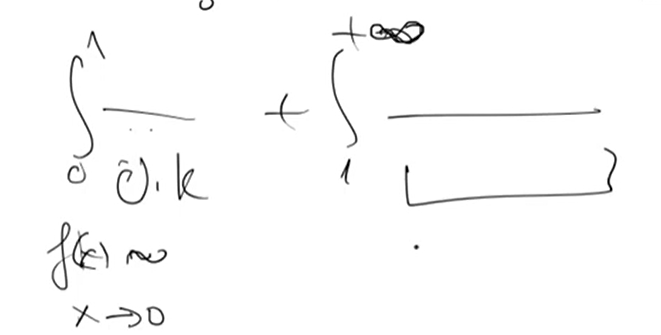 ∫₀¹ —— + ∫₁^{+∞} ——
o.k
f(x) ~
x → 0